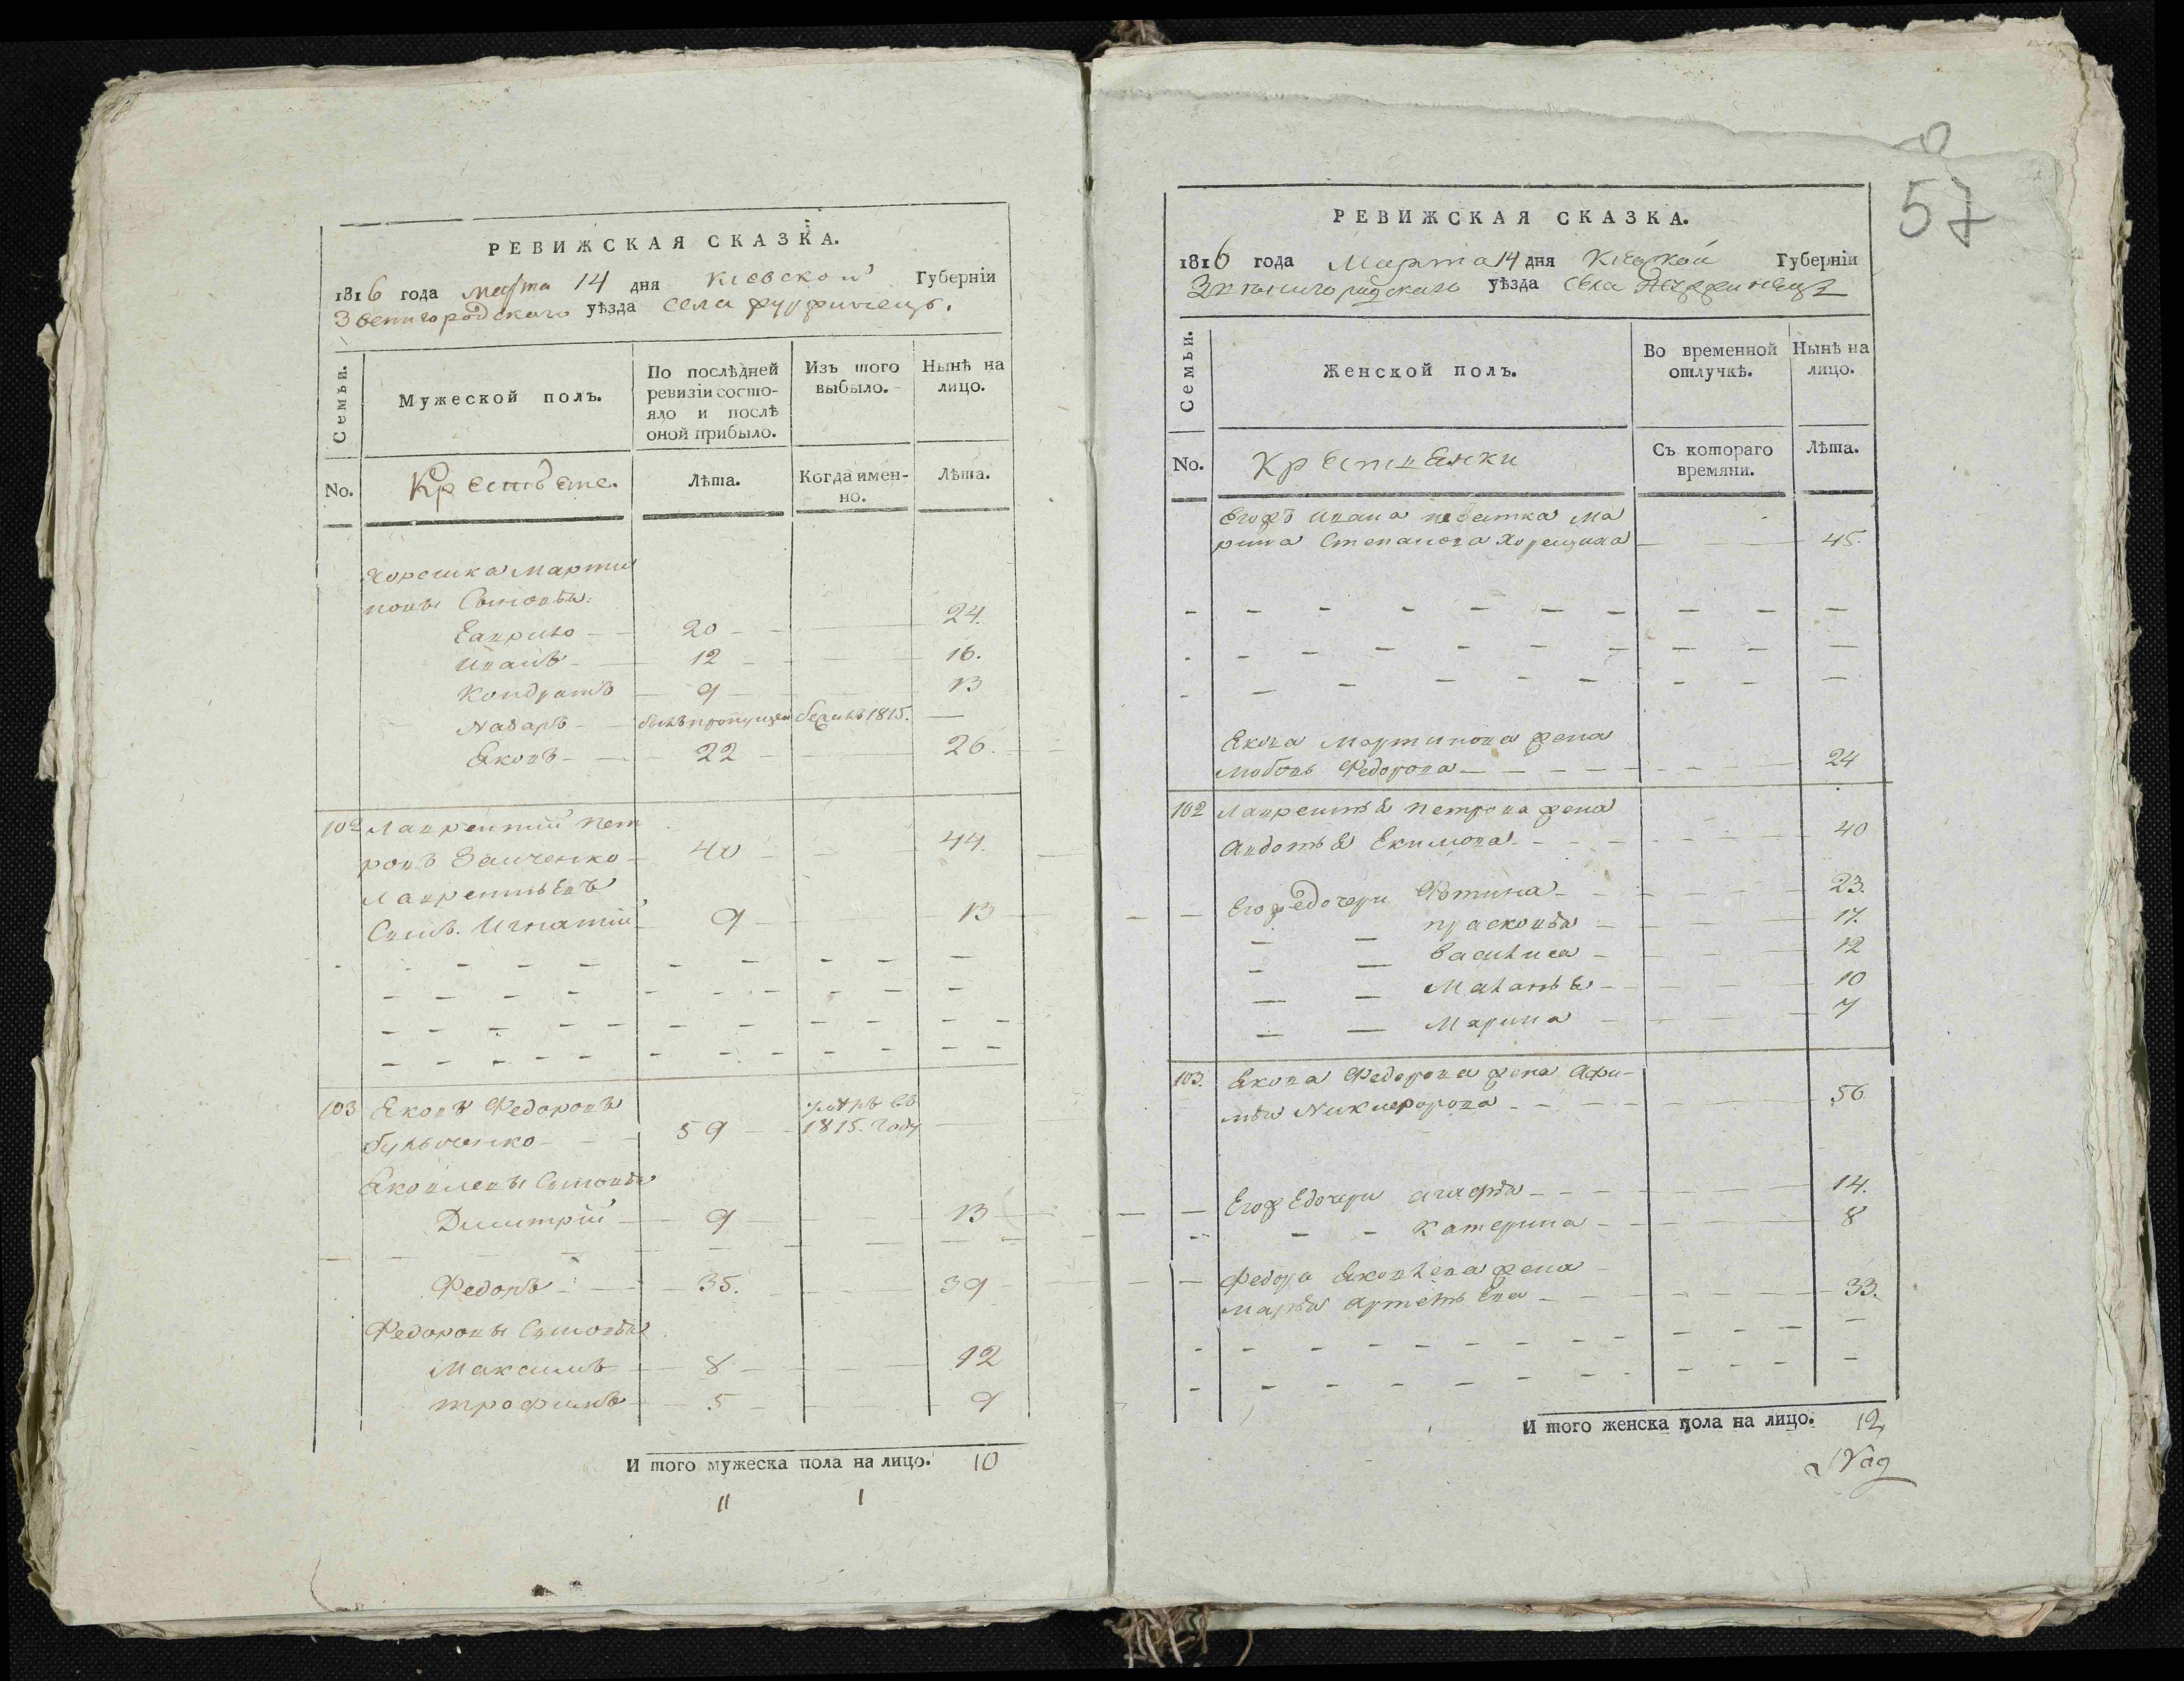 РЕВИЖСКАЯ СКАЗКА.
1816 года марта 14 дня Кіевской Губерніи
Звенигородскаго уѣзда села
Семьи.
Мужеской полъ.
По послѣдней ревизіи состо-
яло и послѣ
оной прибыло.
Изъ того
выбыло.
Нынѣ на
лицо.
No.
Крестьяне.
Лѣта.
Когда имен-
но.
Лѣта.
Марти
новы Сыновья:
Гаврило 20 24.
Иванъ 12 16.
Кондратъ 9 13
Назаръ 1815.
Яковъ 22 26.
102 Лаврентий Пет
ровъ 40 44.
Лаврентьевъ
Сынъ. Игнатий 9 13
103 Яковъ Федоровъ
59 1815. году
Яковлевы Сыновья
Дмитрий 9 13
Федоръ 35. 39
Федоровы Сыновья
Максимъ 8 12
трофимъ 5 9
И того мужеска пола на лицо. 10
11 1
57
РЕВИЖСКАЯ СКАЗКА.
1816 года Марта 14 дня Кіевской Губерніи
уѣзда села
Семьи.
Женской полъ.
Во временной
отлучкѣ.
Нынѣ на
лицо.
No.
Крестьянки
Съ котораго
времяни.
Лѣта.
Ивана невестка Ма
рина Степанова 45.
Якова Мартинова жена
Любовь Федорова 24
102 Лаврентья Петрова жена
Авдотья Екимова 40
Его же дочери Фотина 23.
прасковья 17.
Василиса 12
Маланья 10
Марина 7
103. Якова Федорова жена Афи-
мья Никифорова 56
Его же дочери агафья 14.
Катерина 8
Федора Яковлева жена
марья артемьева 33.
И того женска пола на лицо. 12